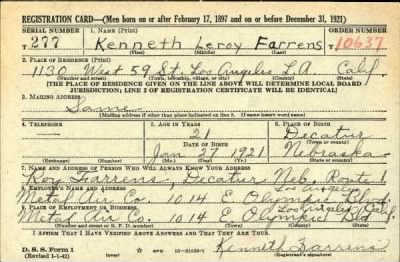 REGISTRATION CARD—(Men born on or after February 17, 1897 and on or before December 31, 1921)
SERIAL NUMBER 1. NAME (Print) ORDER NUMBER
T 277 Kenneth Leroy Farrens 10637
(First) (Middle) (Last)
2. PLACE OF RESIDENCE (Print)
1130 West 59 St. Los Angeles L.A. Calif.
(Number and street) (Town, township, village, or city) (County) (State)
[THE PLACE OF RESIDENCE GIVEN ON THE LINE ABOVE WILL DETERMINE LOCAL BOARD
JURISDICTION; LINE 2 OF REGISTRATION CERTIFICATE WILL BE IDENTICAL]
3. MAILING ADDRESS
Same
[Mailing address if other than place indicated on line 2. If same insert word same]
4. TELEPHONE 5. AGE IN YEARS 6. PLACE OF BIRTH
21 Decatur
DATE OF BIRTH (Town or county)
Jan 27 1921 Nebraska
(Exchange) (Number) (Mo.) (Day) (Yr.) (State or country)
7. NAME AND ADDRESS OF PERSON WHO WILL ALWAYS KNOW YOUR ADDRESS
Roy Farrens, Decatur Neb. Route 1
8. EMPLOYER'S NAME AND ADDRESS
Los Angeles
Metal Air Co. 1014 E. Olympic Blvd.
9. PLACE OF EMPLOYMENT OR BUSINESS
Los Angeles Calif.
Metal Air Co. 1014 E. Olympic Bld
(Number and street or R. F. D. number) (Town) (County) (State)
I AFFIRM THAT I HAVE VERIFIED ABOVE ANSWERS AND THAT THEY ARE TRUE.
D. S. S. Form 1
(Revised 1-1-42) Kenneth Farrens
(Registrant's signature)